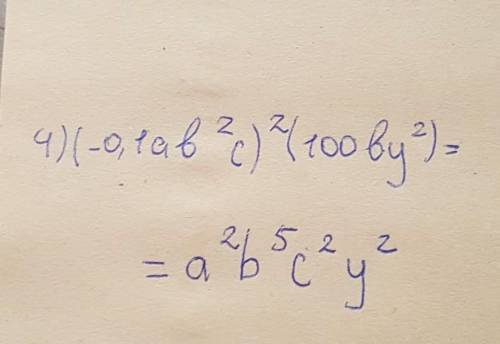 4) (-0,1ab²c)²(100by²)=
= a²b⁵c²y²